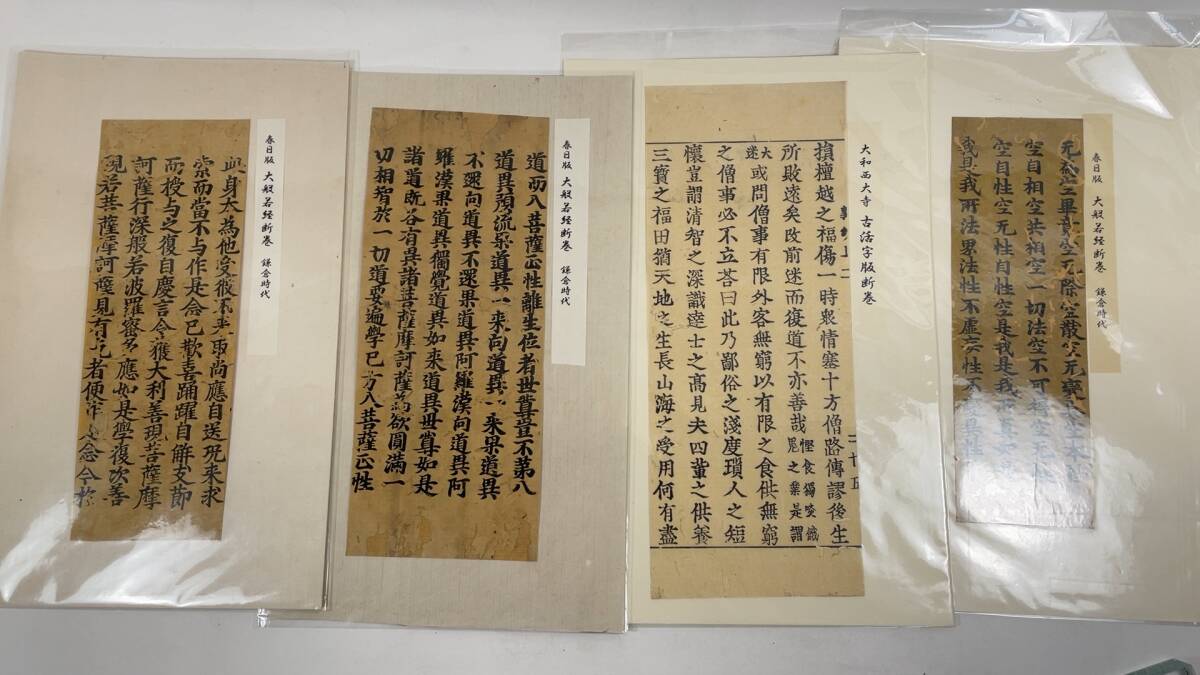 春日版 大般若経断巻 鎌倉時代
空自相空共相空一切法空不可得空无性
空自性空无性自性空是我是我
我是我所法界法性不虛妄性不變異性
大和西大寺 古活字版断巻
二十五
損檀越之福傷一時衆情塞十方僧路傳謬後生
所敗遠矣改前迷而復道不亦善哉慳食獨啖餓
鬼之業是謂
大迷或問僧事有限外客無窮以有限之食供無窮
之僧事必不立荅曰此乃鄙俗之淺度瑣人之短
懷豈謂清智之深識達士之高見夫四輩之供養
三寶之福田猶天地之生長山海之受用何有盡
春日版 大般若経断巻 鎌倉時代
道而入菩薩正性離生位者世尊豈不第八
道異預流果道異一來向道異一來果道異
不還向道異不還果道異阿羅漢向道異阿
羅漢果道異獨覺道異如來道異世尊如是
諸道既各有異諸菩薩摩訶薩為欲圓滿一
切相智於一切道要遍學已方入菩薩正性
春日版 大般若経断巻 鎌倉時代
此身本為他受彼不來取尚應自送況來求
索而當不与作是念已歡喜踊躍自解支節
而授与之復自慶言今獲大利善現菩薩摩
訶薩行深般若波羅蜜多應如是學復次善
現若菩薩摩訶薩見有乞者便作是念今於